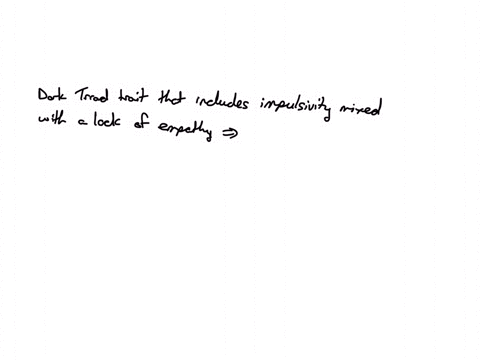 Dark Triad trait that includes impulsivity mixed
with a lack of empathy ⇒